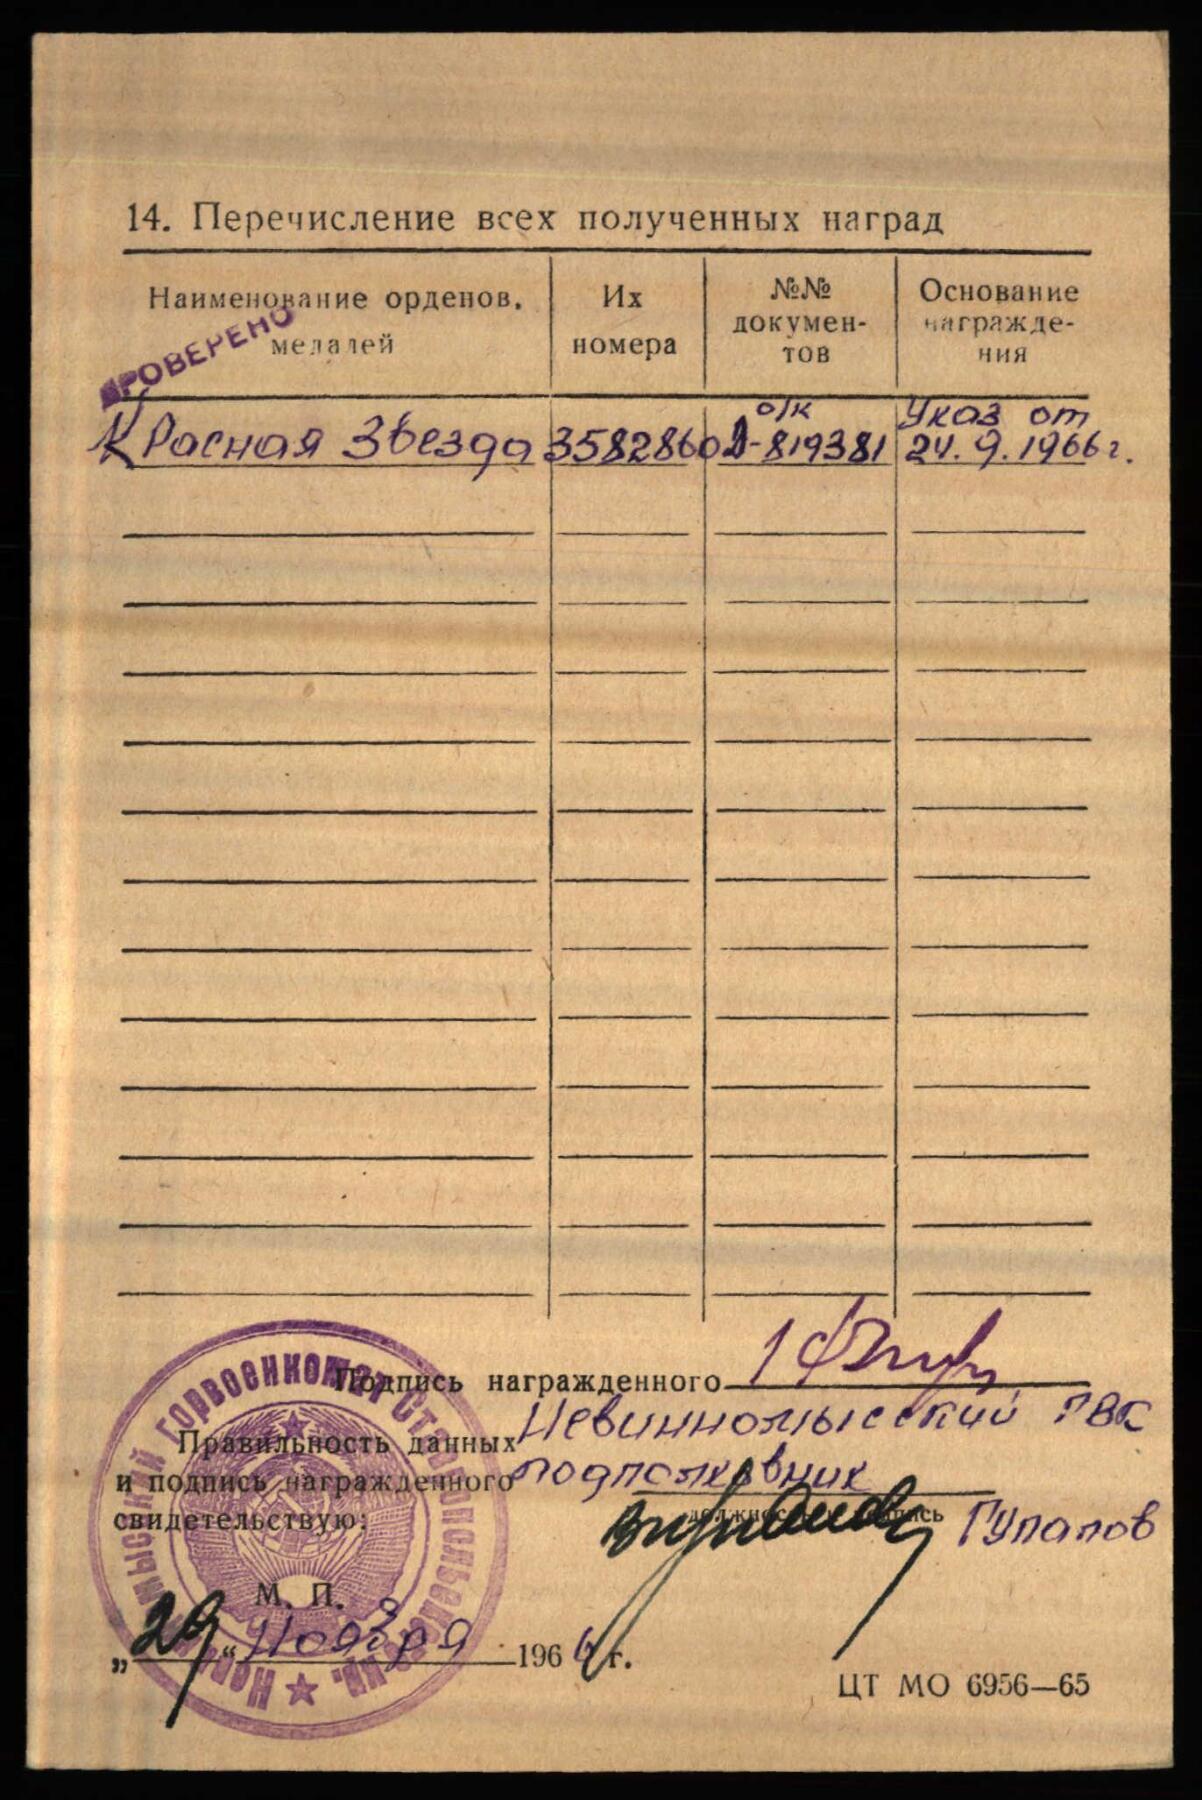 14. Перечисление всех полученных наград
Наименование орденов, медалей
Их номера
№№ документов
Основание награждения
ПРОВЕРЕНО
Красная Звезда 3582860 о/к Д-819381 Указ от 24.9.1966 г.
Подпись награжденного
Невинномысский ГВК
Правильность данных
и подпись награжденного
свидетельствую:
подполковник
должность и подпись
М. П.
„29“ Ноября 1966 г.
ЦТ МО 6956—65